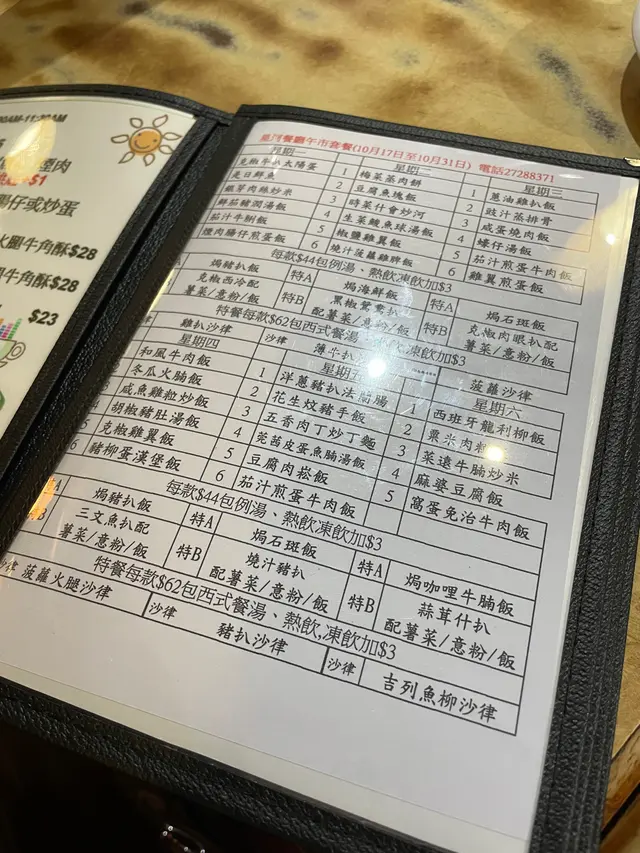 00AM-11:30AM
$1
腸仔或炒蛋
火腿牛角酥$28
牛角酥$28
$23
河餐廳午市套餐(10月17日至10月31日) 電話27288371
星期一 星期二 星期三
太陽蛋 1 梅菜蒸肉餅 1 蔥油雞扒飯
是日鮮魚 2 豆腐魚塊飯 2 豉汁蒸排骨
銀芽肉絲炒米 3 時菜什會炒河 3 咸蛋燒肉飯
鮮茄豬潤湯飯 4 生菜鯪魚球湯飯 4 蠔仔湯飯
茄汁牛脷飯 5 椒鹽雞翼飯 5 茄汁煎蛋牛肉飯
煙肉腸仔煎蛋飯 6 燒汁菠蘿雞脾飯 6 雞翼煎蛋飯
每款$44包例湯、熱飲凍飲加$3
焗豬扒飯 特A 焗海鮮飯 特A 焗石斑飯
克椒西冷配 特B 黑椒鴛鴦扒 特B 克椒肉眼扒配
薯菜/意粉/飯 配薯菜/意粉/飯 薯菜/意粉/飯
特餐每款$62包西式餐湯、熱飲凍飲加$3
雞扒沙律 沙律 薄牛扒 菠蘿沙律
星期四 星期五 星期六
和風牛肉飯 1 洋蔥豬扒法 腸 1 西班牙龍利柳飯
冬瓜火腩飯 2 花生炆豬手飯 2 粟米肉粒
咸魚雞粒炒飯 3 五香肉丁炒丁麵 3 菜遠牛腩炒米
胡椒豬肚湯飯 4 芫茜皮蛋魚腩湯飯 4 麻婆豆腐飯
克椒雞翼飯 5 豆腐肉崧飯 5 窩蛋免治牛肉飯
豬柳蛋漢堡飯 6 茄汁煎蛋牛肉飯
每款$44包例湯、熱飲凍飲加$3
A 焗豬扒飯 特A 焗石斑飯 特A 焗咖哩牛腩飯
三文魚扒配 特B 燒汁豬扒 特B 蒜茸什扒
薯菜/意粉/飯 配薯菜/意粉/飯 配薯菜/意粉/飯
特餐每款$62包西式餐湯、熱飲,凍飲加$3
沙律 菠蘿火腿沙律 沙律 豬扒沙律 沙律 吉列魚柳沙律